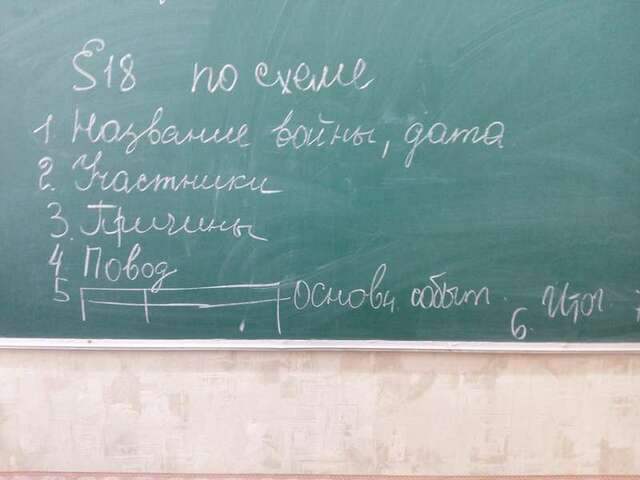 §18 по схеме
1. Название войны, дата
2. Участники
3. Причины
4. Повод
5 Основн. событ.
6. Итог